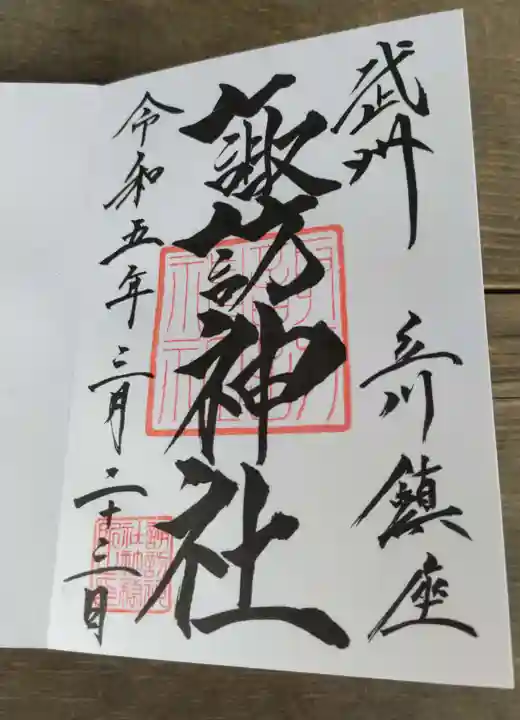 武州 立川鎮座
諏訪神社
令和五年 三月 二十二日